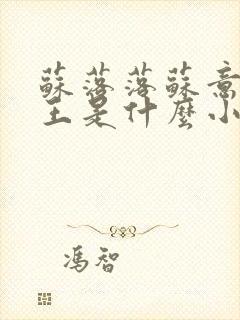 蘇落落蘇意
主是什麼小
馮智